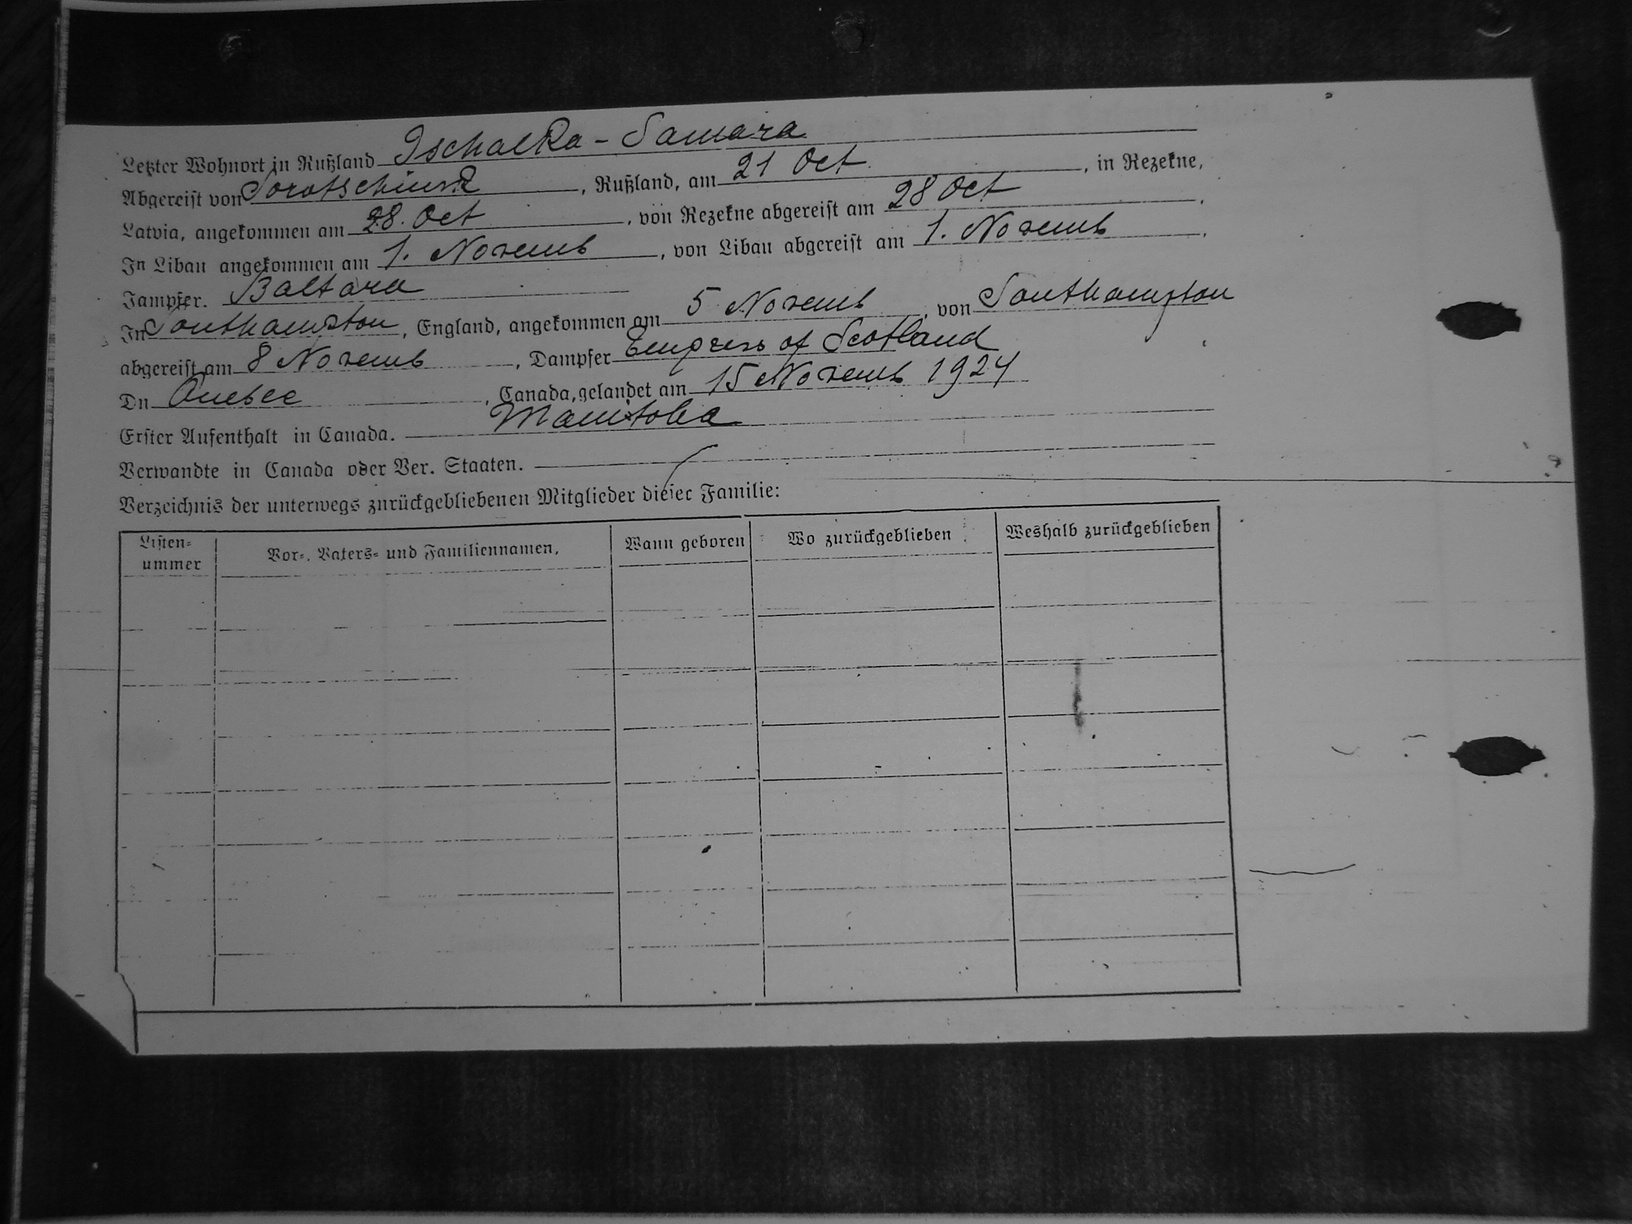 Letzter Wohnort in Rußland Ischalka - Samara
Abgereist von Sorotschinsk, Rußland, am 21 Oct, in Rezekne,
Latvia, angekommen am 28. Oct, von Rezekne abgereist am 28 Oct.
In Libau angekommen am 1. Novemb, von Libau abgereist am 1. Novemb.
Jampfer. Baltara
In Southampton, England, angekommen am 5 Novemb, von Southampton
abgereist am 8 Novemb, Dampfer Empress of Scotland
Dn Quebec, Canada, gelandet am 15 Novemb 1924
Erster Aufenthalt in Canada. Manitoba
Verwandte in Canada oder Ver. Staaten.
Verzeichnis der unterwegs zurückgebliebenen Mitglieder dieser Familie:
Listen-
ummer
Vor-, Vaters- und Familiennamen,
Wann geboren
Wo zurückgeblieben
Weshalb zurückgeblieben